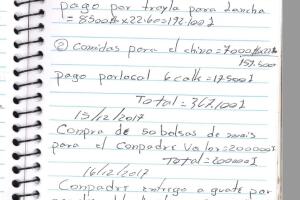 pago por troyla para lancha
= 8500 x 22.60 = 192.100
② Comidas para el chino = 7000
157.500
pago por local 6 calle = 17.500
Total = 367.100
15/12/2017
Conpra de 50 bolsas de mais
para el conpadre Valor = 200000
Total = 200000
16/12/2017
Conpadre entrego a guate por